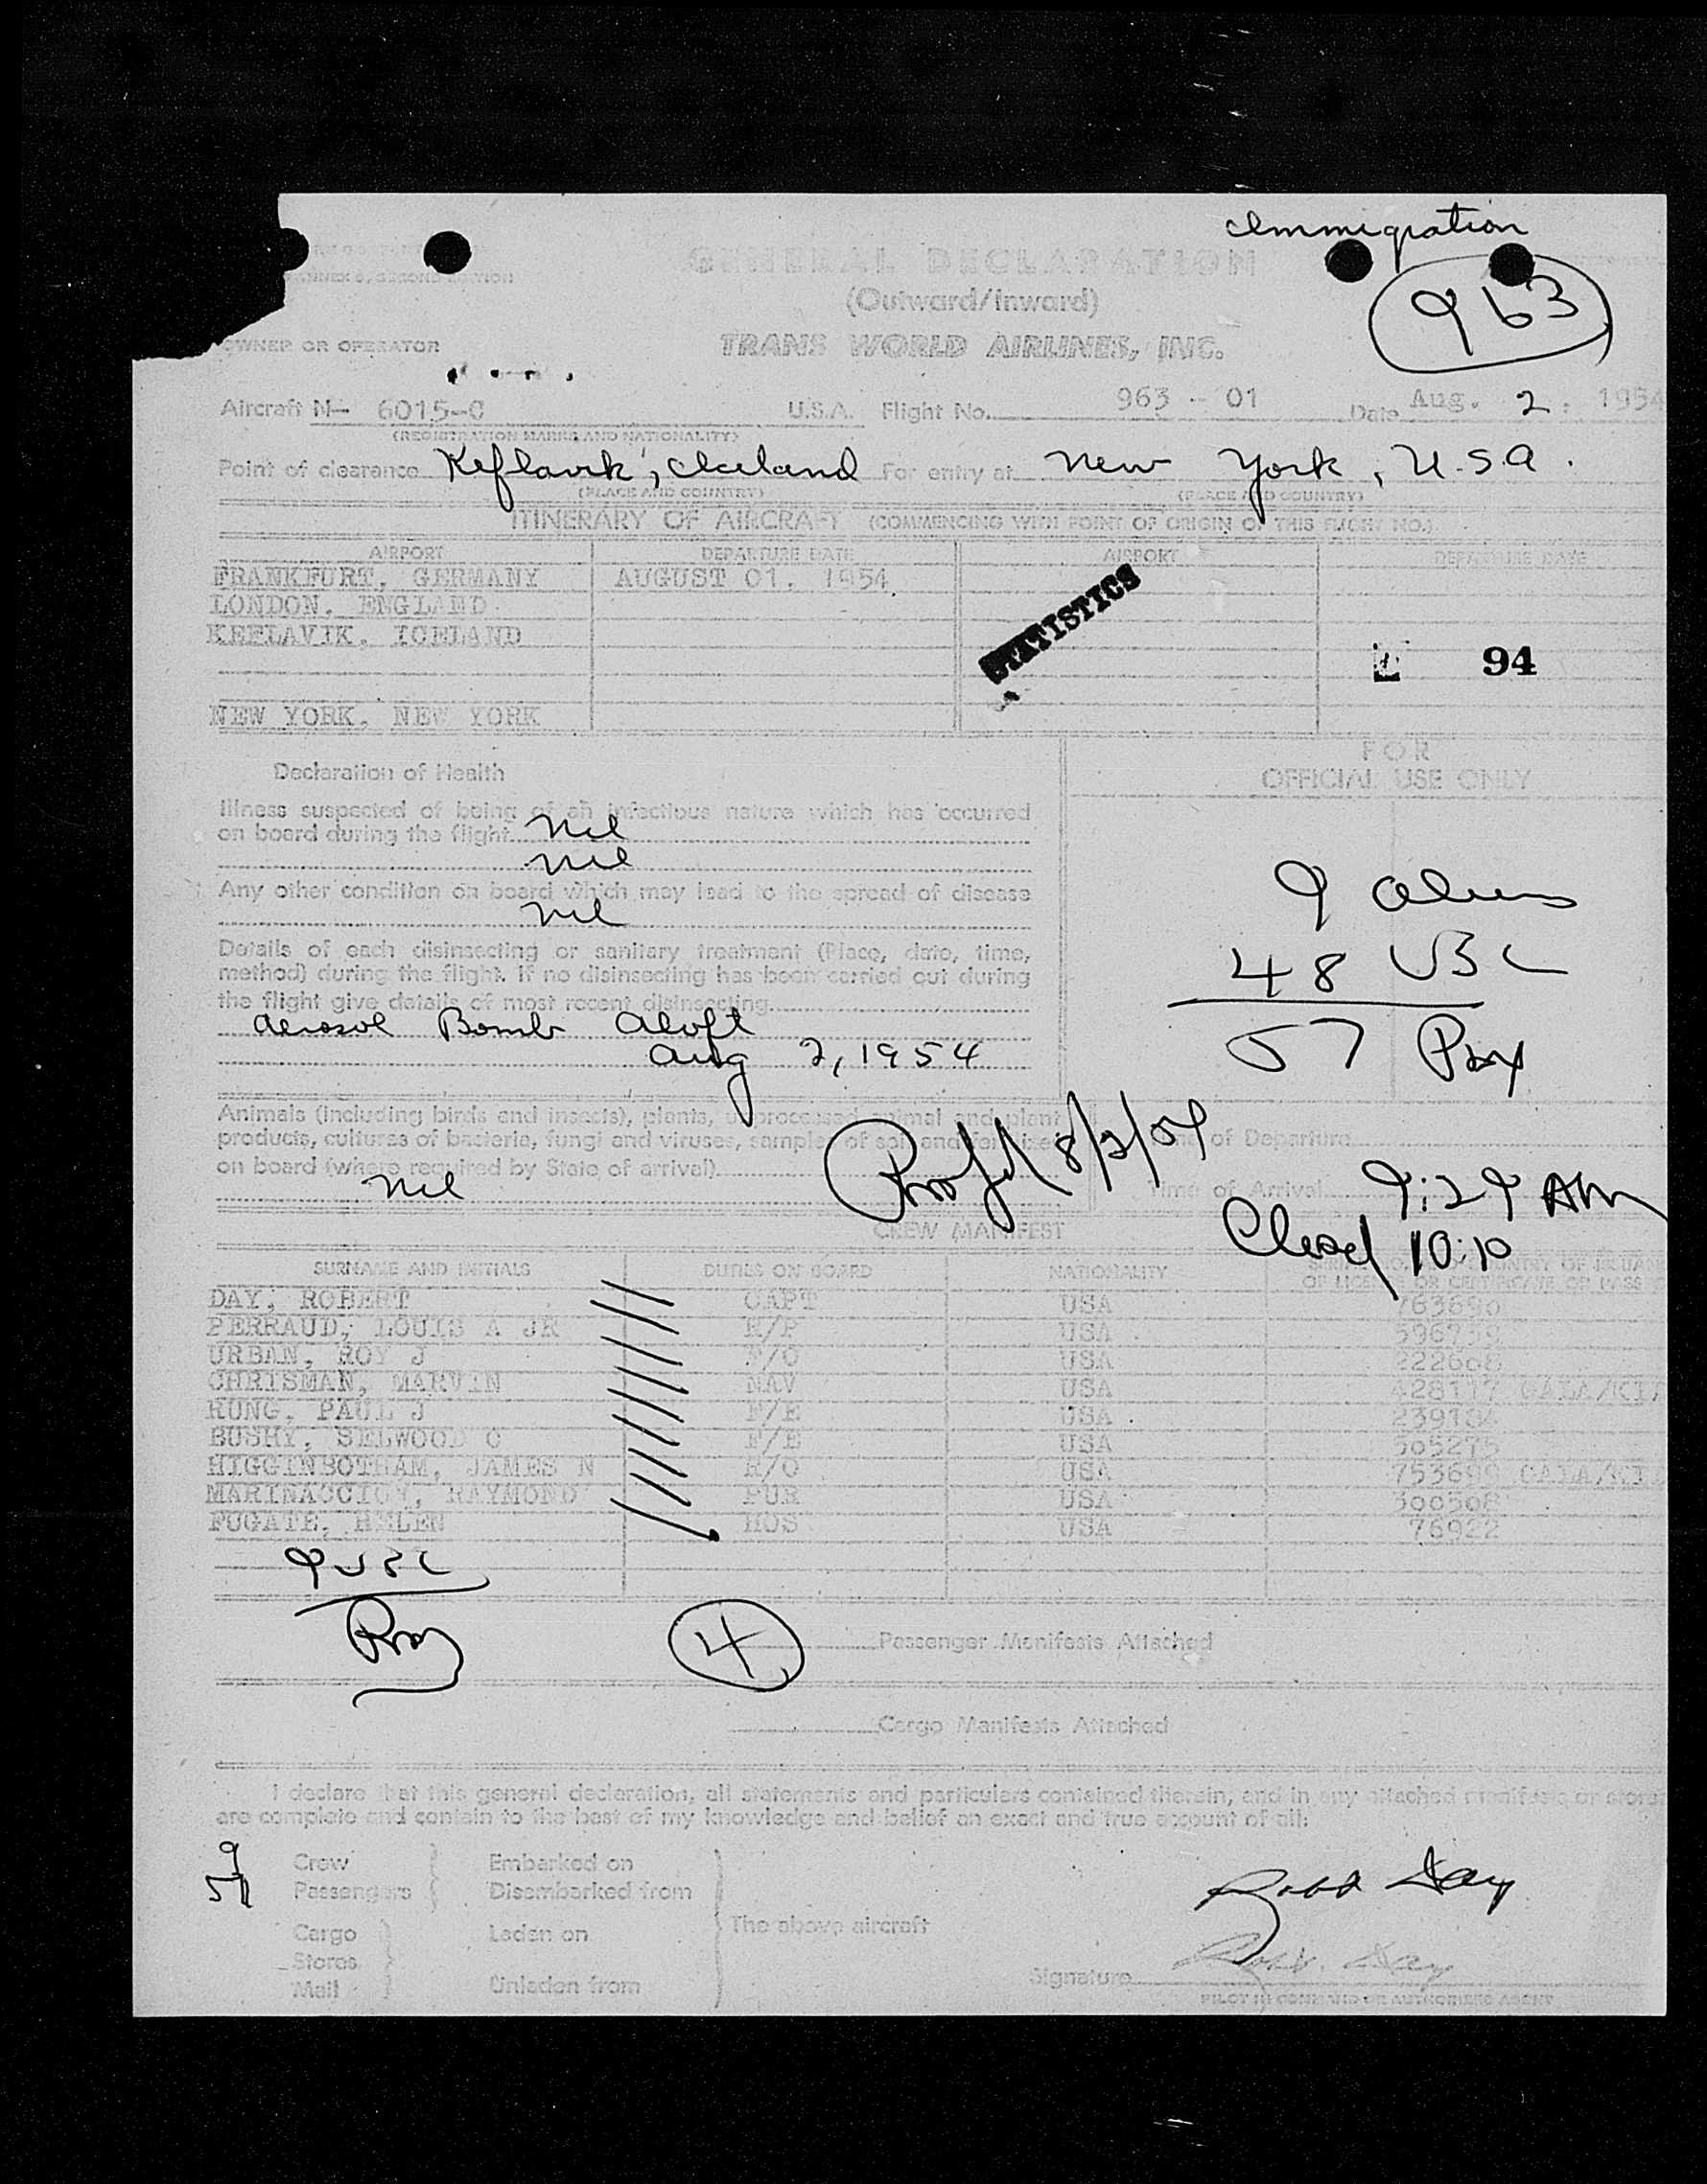 Immigration
ANNEX 9, SECOND EDITION
GENERAL DECLARATION
(Outward/Inward)
963
OWNER OR OPERATOR
TRANS WORLD AIRLINES, INC.
Aircraft N- 6015-C U.S.A. Flight No. 963 - 01 Date Aug. 2, 1954
(REGISTRATION MARKS AND NATIONALITY)
Point of clearance Keflavik, Iceland For entry at New York, U.S.A.
(PLACE AND COUNTRY) (PLACE AND COUNTRY)
ITINERARY OF AIRCRAFT (COMMENCING WITH POINT OF ORIGIN OF THIS FLIGHT NO.)
AIRPORT DEPARTURE DATE AIRPORT DEPARTURE DATE
FRANKFURT, GERMANY AUGUST 01, 1954
LONDON, ENGLAND
KEFLAVIK, ICELAND
STATISTICS
94
NEW YORK, NEW YORK
FOR
OFFICIAL USE ONLY
Declaration of Health
Illness suspected of being of an infectious nature which has occurred
on board during the flight. Nil
Nil
Any other condition on board which may lead to the spread of disease
Nil
9 Aliens
48 USC
57 Pax
Details of each disinsecting or sanitary treatment (Place, date, time,
method) during the flight. If no disinsecting has been carried out during
the flight give details of most recent disinsecting.
Aerosol Bomb Aloft
Aug 2, 1954
Animals (including birds and insects), plants, unprocessed animal and plant
products, cultures of bacteria, fungi and viruses, samples of soil and fertilizer
on board (where required by State of arrival).
Nil
8/2/54
Time of Departure
Time of Arrival 9:29 AM
Closed 10:10
CREW MANIFEST
SURNAME AND INITIALS DUTIES ON BOARD NATIONALITY
OF LICENSE OR CERTIFICATE OR PASS
DAY, ROBERT CAPT USA 763690
PERRAUD, LOUIS A JR USA
URBAN, ROY J F/O USA 222608
CHRISMAN, MARVIN NAV USA 428117
RUNG, PAUL J F/E USA
BUSHY, SELWOOD C F/E USA 505275
HIGGINBOTHAM, JAMES N R/O USA
RAYMOND PUR USA
FUGATE, HELEN HOS USA 76922
9 USC
4 Passenger Manifests Attached
Cargo Manifests Attached
I declare that this general declaration, all statements and particulars contained therein, and in any attached manifests or stores
are complete and contain to the best of my knowledge and belief an exact and true account of all:
9 Crew Embarked on
57 Passengers Disembarked from
The above aircraft
Cargo Laden on
Stores
Mail Unladen from
Robt Day
Signature Robt. Day
PILOT IN COMMAND OR AUTHORIZED AGENT